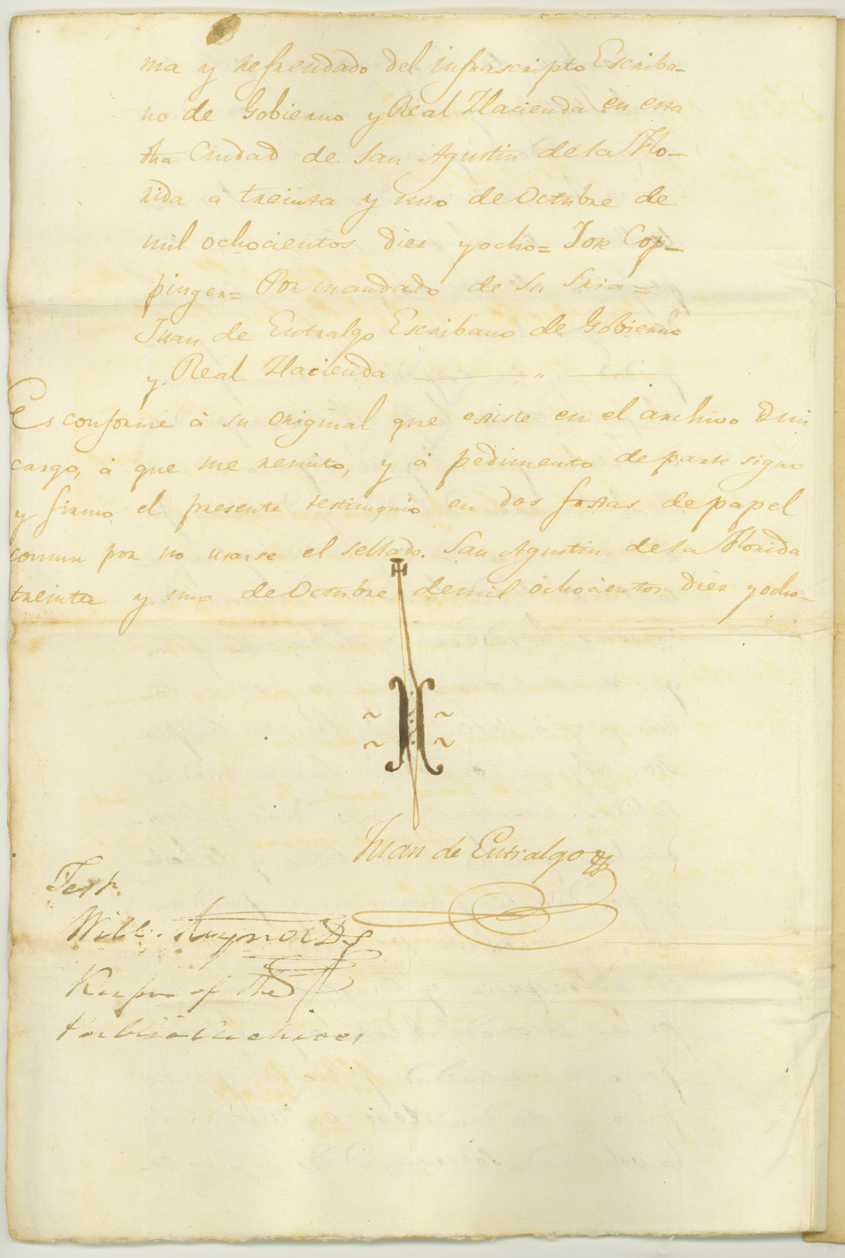 ma y refrendado del infrascripto Escriba-
no de Gobierno y Real Hacienda en esta
dha Ciudad de San Agustin de la Flo-
rida a treinta y uno de Octubre de
mil ochocientos diez y ocho= Jose Cop-
pinger= Por mandado de su Sria=
Juan de Entralgo Escribano de Gobierno
y Real Hacienda
Es conforme à su original que existe en el archivo de mi
cargo, à que me remito, y à pedimento de parte signo
y firmo el presente testimonio en dos foxas de papel
comun por no usarse el sellado. San Agustin de la Florida
treinta y uno de Octubre de mil ochocientos diez y ocho-
Juan de Entralgo
Test.
Will. Reynolds
Keeper of the
Public Archives